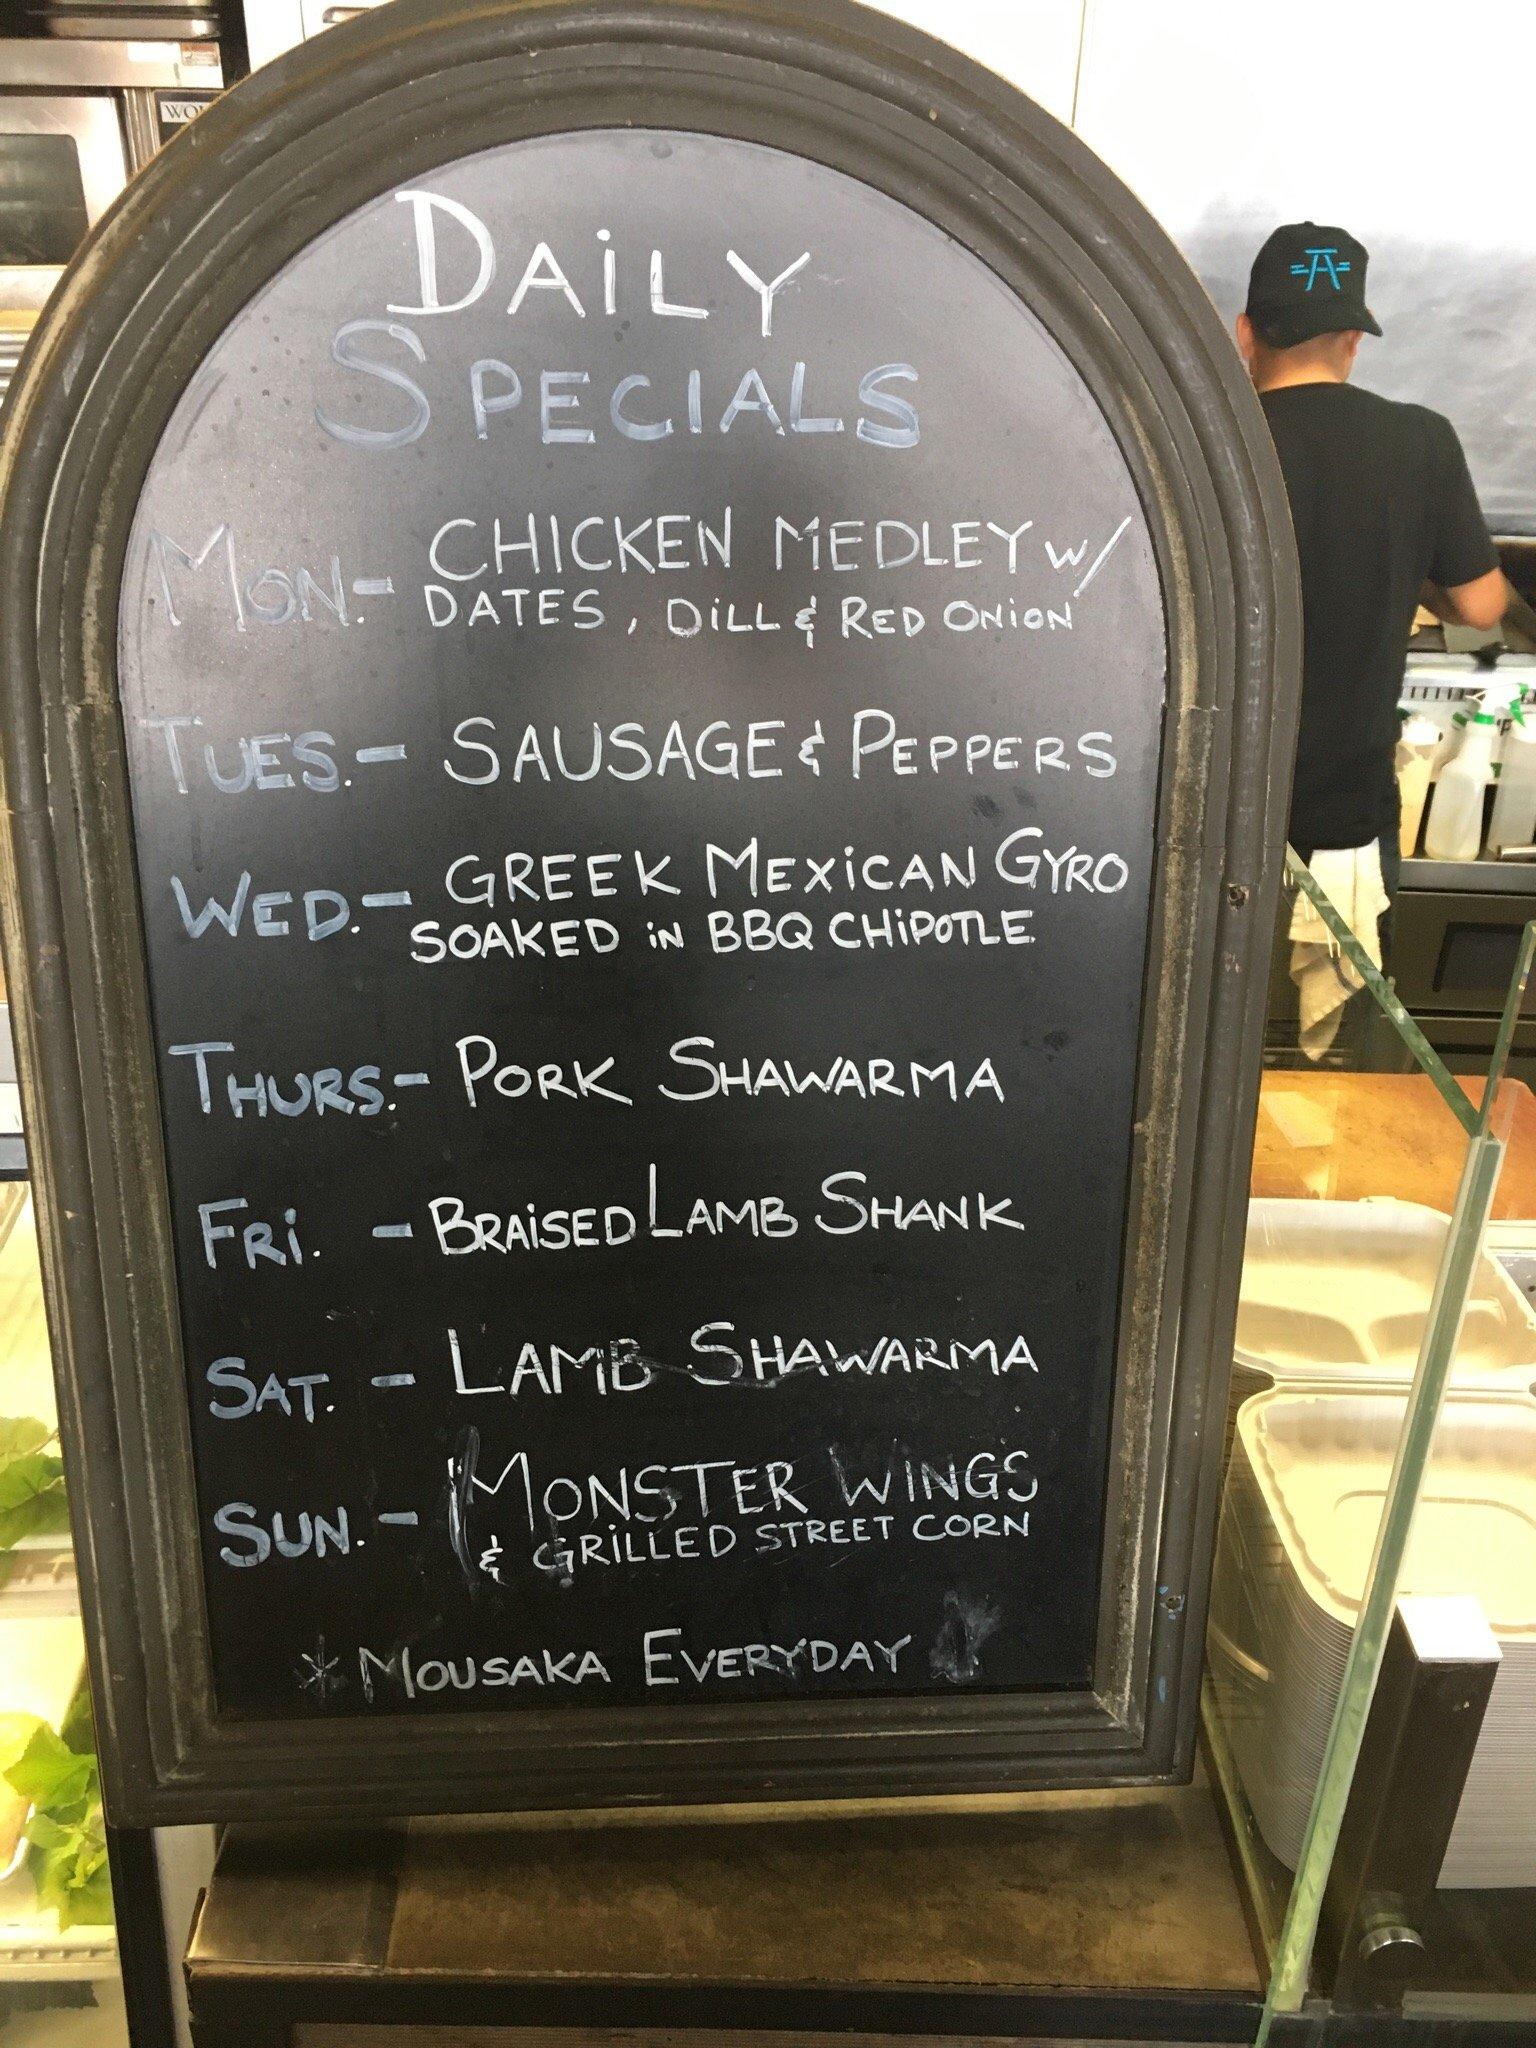 DAiLY
SPECIALS
MON.- CHICKEN MEDLEY w/
DATES, DiLL & RED ONiON
TUES.- SAUSAGE & PEPPERS
WED.- GREEK MEXiCAN GYRO
SOAKED iN BBQ CHiPOTLE
THURS.- PORK SHAWARMA
FRi. - BRAiSED LAMB SHANK
SAT. - LAMB SHAWARMA
SUN. - MONSTER WINGS
& GRiLLED STREET CORN
* MOUSAKA EVERYDAY